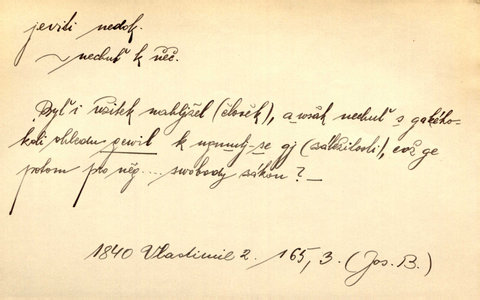 jeviti nedok.
~ nechuť k něč.
Byť i užitek nahlýžel (člověk), a však nechuť s gakého-
koli ohledu gewil k nynuly se gj (záležitosti), což ge
potom pro něg .... swobody zákon? _
1840 Vlastimil 2. 165, 3. (Jos. B.)